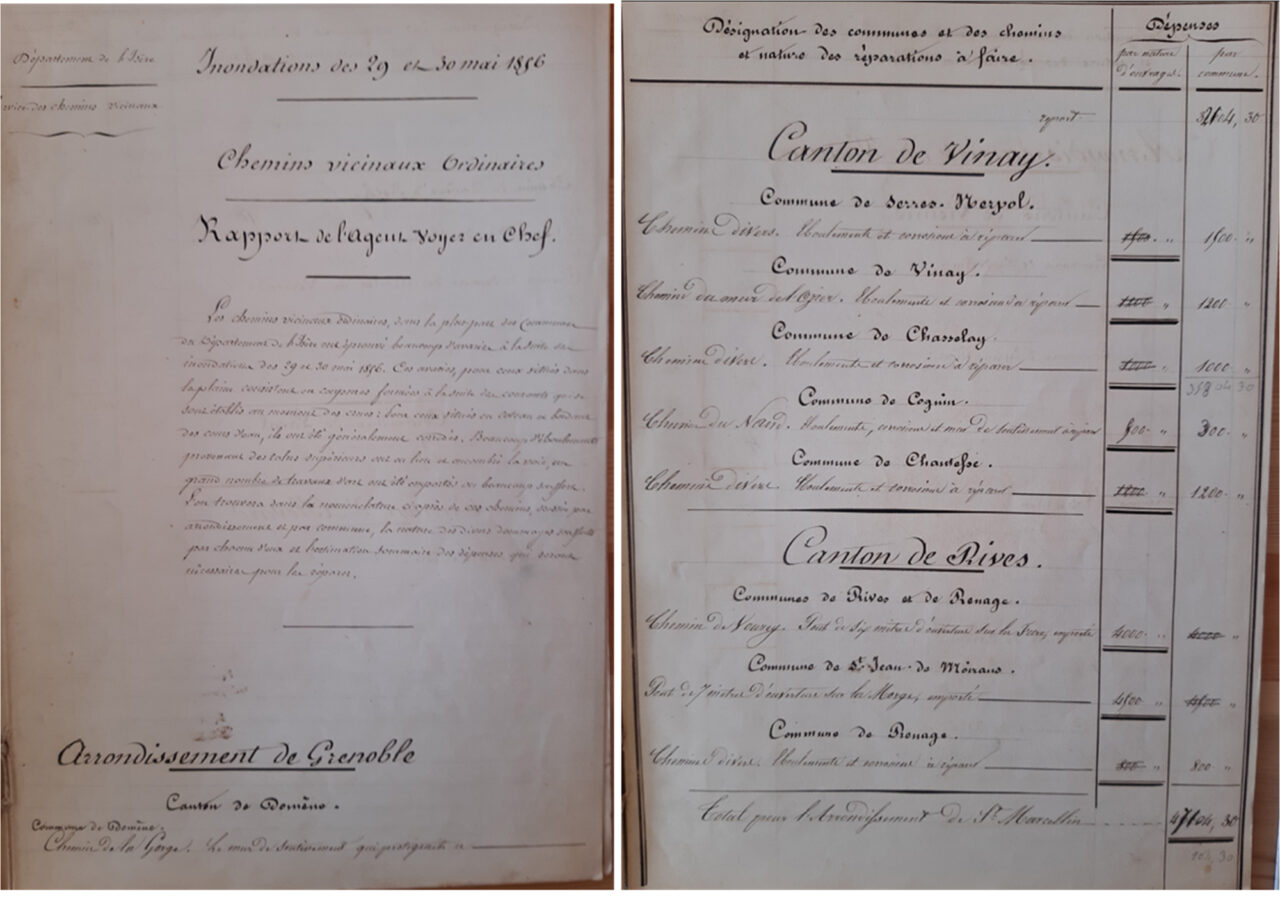 Département de l'Isère
vice des chemins vicinaux
Inondations des 29 et 30 mai 1856
Chemins vicinaux Ordinaires
Rapport de l'Agent Voyer en Chef.
Les chemins vicinaux ordinaires, dans la plus part des Communes
du Département de l'Isère ont éprouvé beaucoup d'avaries à la suite des
inondations des 29 et 30 mai 1856. Ces avaries, pour ceux situés dans
la plaine consistent en formées à la suite des courants qui se
sont établis au moment des crues : pour ceux situés en coteau ou bordant
des cours d'eau, ils ont été généralement corrodés. Beaucoup d'éboulements
provenant des talus supérieurs ont eu lieu et encombré la voie, un
grand nombre de travaux d'art ont été emportés ou beaucoup souffert.
L'on trouvera dans la nomenclature d'après de ces chemins, par
arrondissement et par commune, la nature des divers dommages soufferts
par chacun d'eux et l'estimation sommaire des dépenses qui seront
nécessaires pour les réparer.
Arrondissement de Grenoble
Canton de Domène.
Commune de Domène.
Chemin de la Gorge. Le mur de soutènement qui protégeait ce
Désignation des communes et des chemins
et nature des réparations à faire.
Dépenses
par nature d'ouvrages.
par commune.
report 04, 30
Canton de Vinay.
Commune de Serres-Nerpol.
Chemins divers. Eboulements et corrosions à réparer 1500 " 1500 "
Commune de Vinay.
Chemin du Eboulements et corrosions à réparer 1200 " 1200 "
Commune de Chasselay.
Chemins divers. Eboulements et corrosions à réparer 1000 " 1000 "
04 30
Commune de Cognin.
Chemin du Eboulements, corrosions et mur de soutènement à réparer 300 "
Commune de Chantesse.
Chemins divers. Eboulements et corrosions à réparer 1200 " 1200 "
Canton de Rives.
Communes de Rives et de Renage.
Chemin de Vourey. Pont de six mètres d'ouverture sur la Fure, emporté 4000 " 4000 "
Commune de St Jean-de Moirans.
Pont de 7 mètres d'ouverture sur la Morge, emporté 4500 " 4500 "
Commune de Renage.
Chemins divers. Eboulements et corrosions à réparer 800 " 800 "
Total pour l'Arrondissement de St Marcellin 04, 30